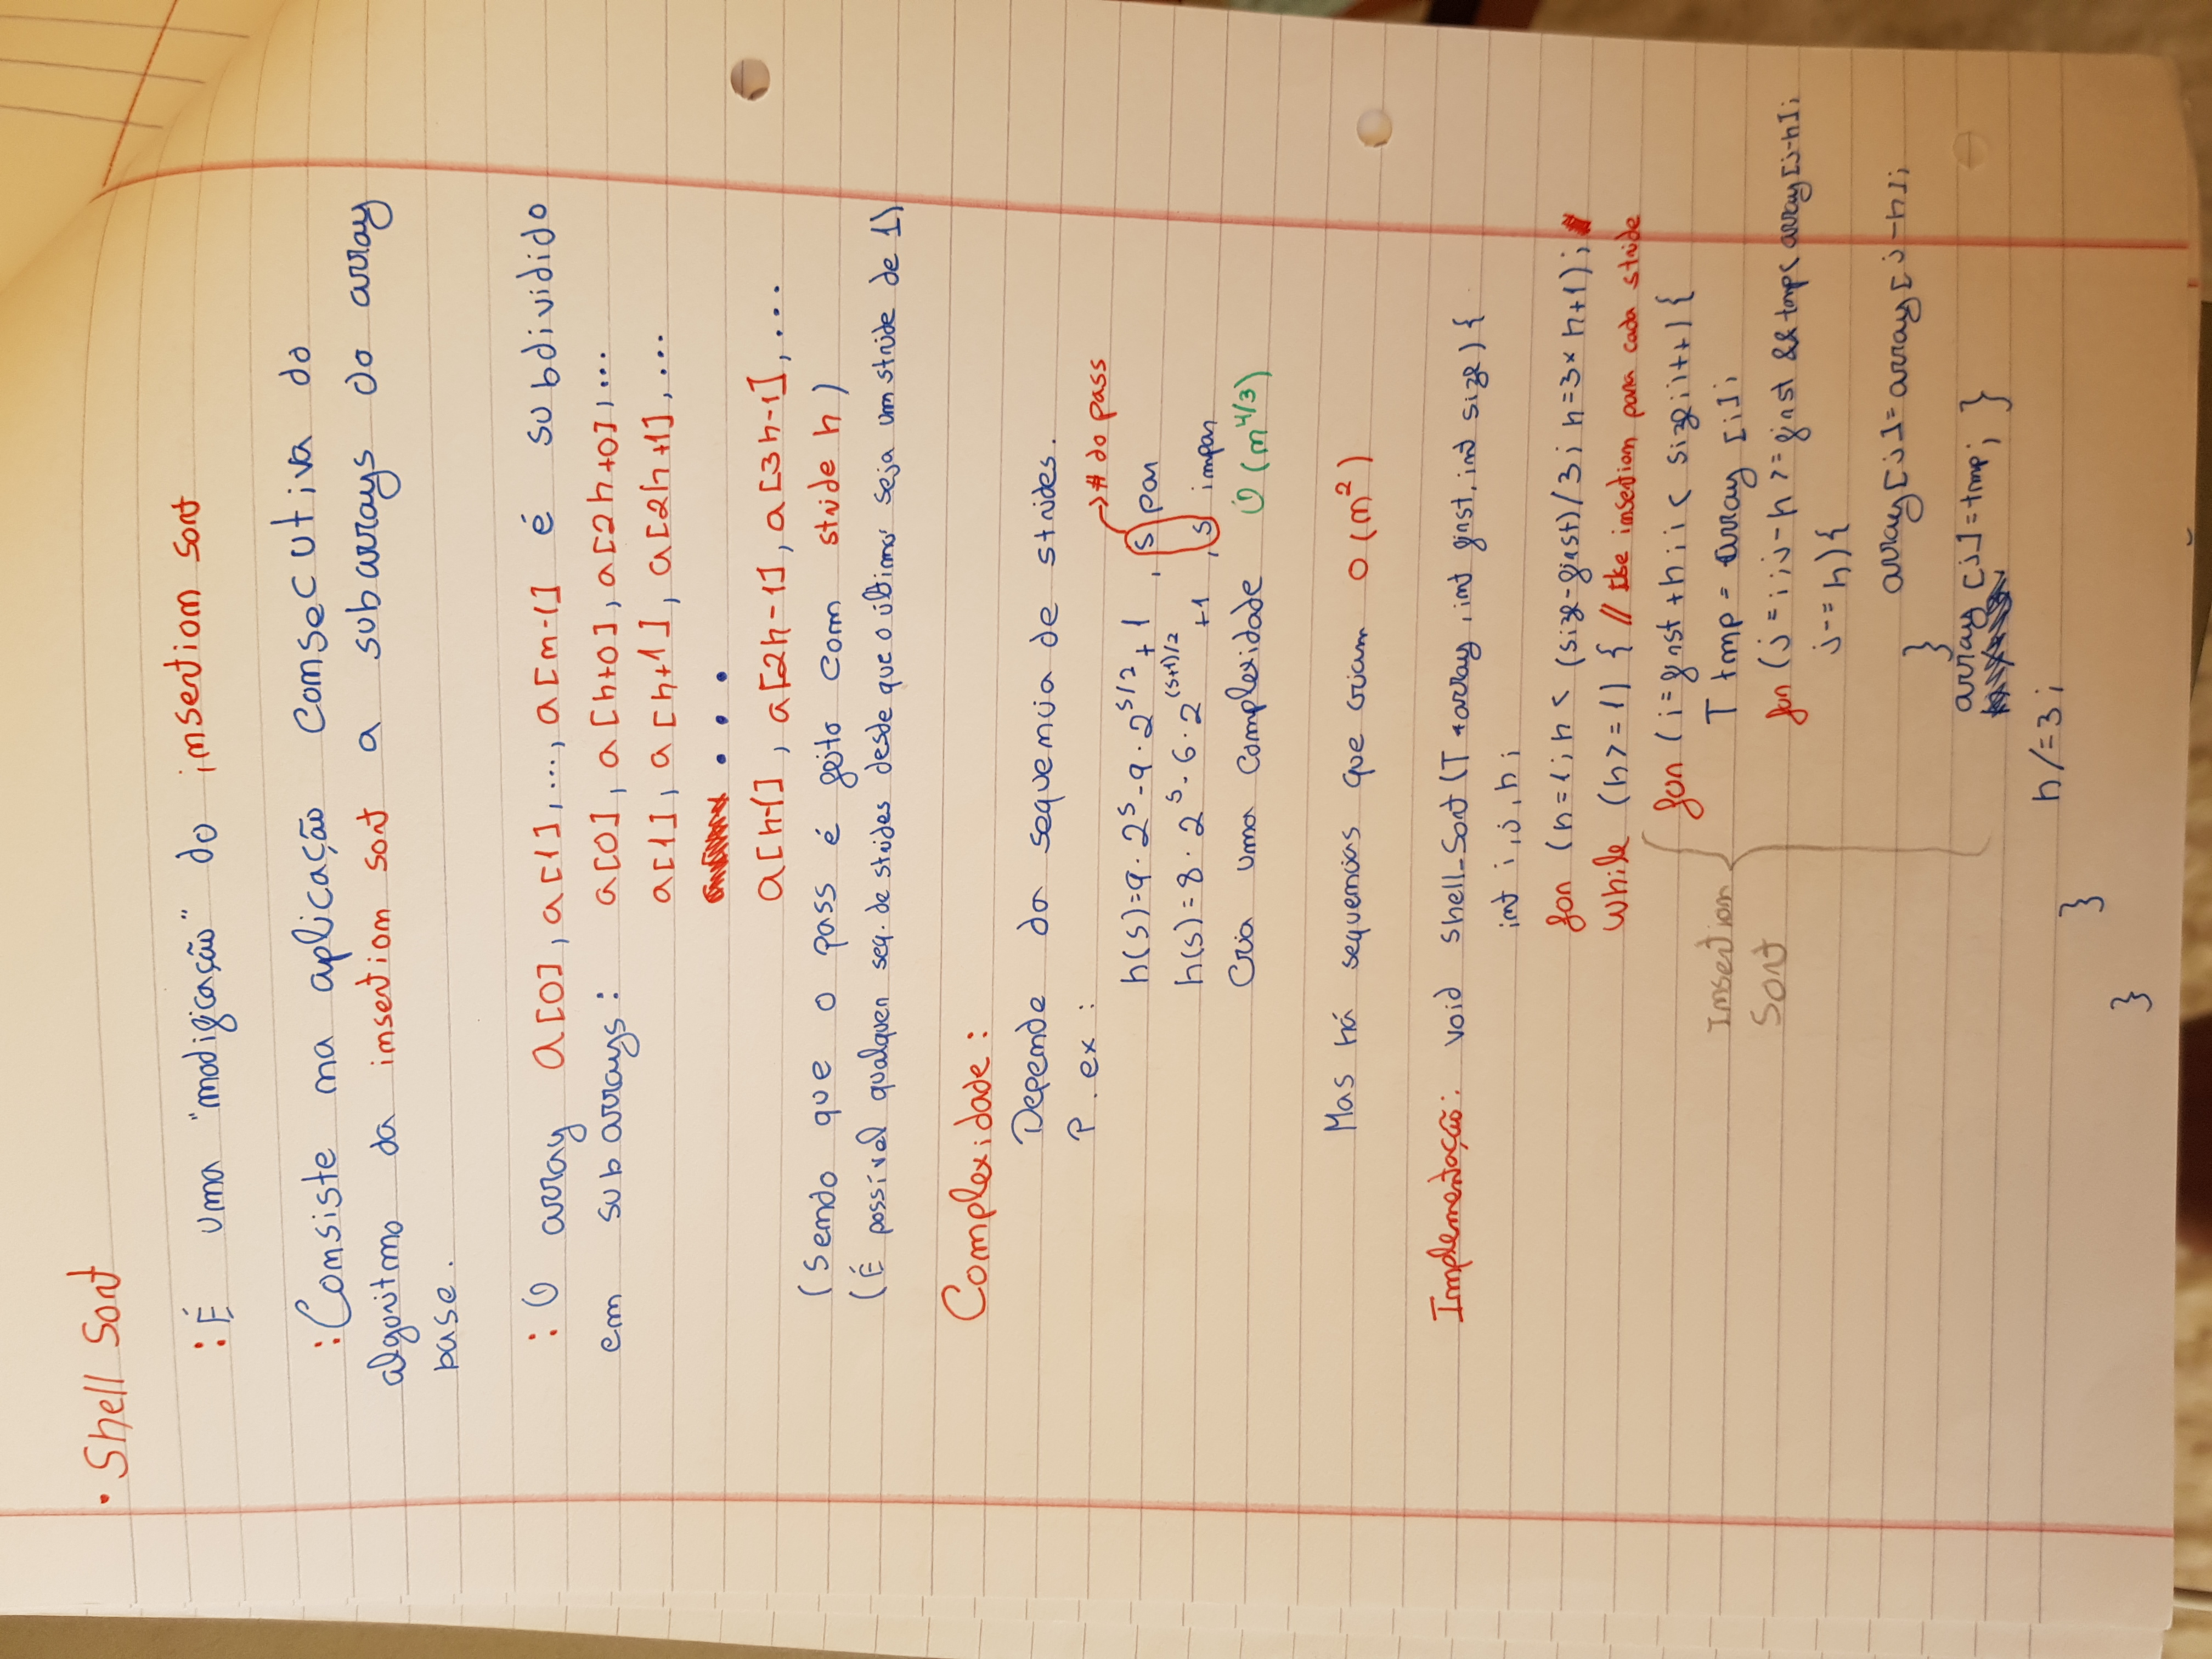 • Shell Sort
: É uma "modificação" do insertion sort
: Consiste na aplicação consecutiva do
algoritmo da insertion sort a subarrays do array
base.
: O array a[0], a[1], ..., a[n-1] é subdividido
em subarrays: a[0], a[h+0], a[2h+0], ...
a[1], a[h+1], a[2h+1], ...
...
a[h-1], a[2h-1], a[3h-1], ...
(Sendo que o pass é feito com stride h)
(É possível qualquer seq. de strides desde que o último seja um stride de 1)
Complexidade:
Depende da sequencia de strides.
P. ex:
→ # do pass
h(s)=9·2^s-9·2^(s/2)+1 , s par
h(s)=8·2^s-6·2^((s+1)/2)+1 , s impar
Cria uma complexidade O(n^(4/3))
Mas há sequencias que criam O(n²)
Implementação: void Shell_Sort(T *array, int first, int size){
int i,j,h;
for (h=1;h < (size-first)/3; h=3*h+1);
while (h>=1) { // Use insertion para cada stride
for (i=first+h;i< size;i++){
Insertion
Sort
T tmp = array[i];
for (j=i;j-h >=first && tmp< array[j-h];
j-=h){
array[j]=array[j-h];
}
array[j]=tmp; }
h/=3;
}
}